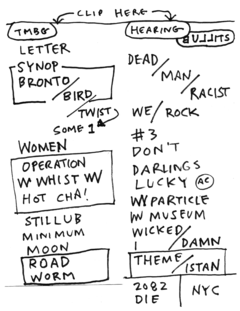 CLIP HERE
TMBG
LETTER
SYNOP
BRONTO
BIRD
TWIST
SOME 1
WOMEN
OPERATION
W WHIST W
HOT CHA!
STILLUB
MINIMUM
MOON
ROAD
WORM
HEARING
BULLITS
DEAD
MAN
RACIST
WE / ROCK
#3
DON'T
DARLINGS
LUCKY AC
W PARTICLE
W MUSEUM
WICKED
I / DAMN
THEME
ISTAN
2082
DIE
NYC